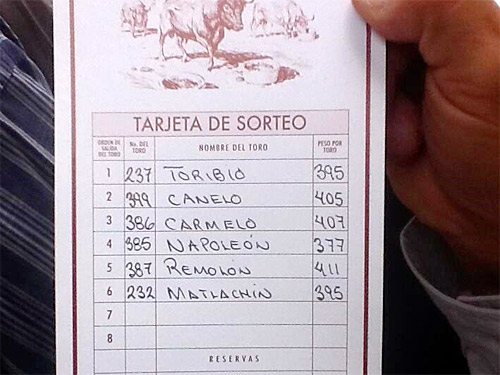 TARJETA DE SORTEO
ORDEN DE SALIDA DEL TORO No. DEL TORO NOMBRE DEL TORO PESO POR TORO
1 237 TORIBIO 395
2 399 CANELO 405
3 386 CARMELO 407
4 385 NAPOLEÓN 377
5 387 REMOLÓN 411
6 232 MATLACHIN 395
7
8
RESERVAS